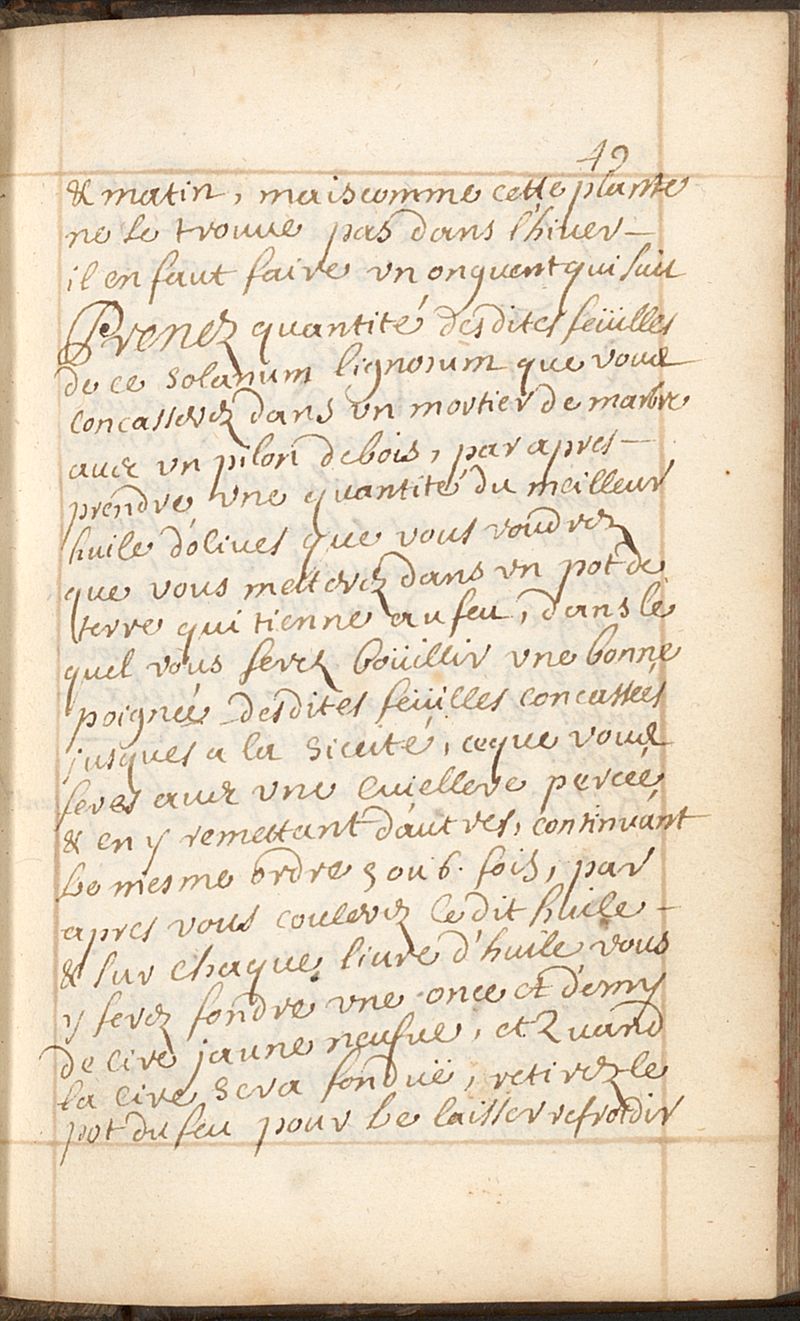 49
& matin, mais comme cette plante
ne se trouve pas dans l'hiver —
il en faut faire un onguent qui suit
Prenez quantité desdites feüilles
de ce solanum lignosum que vous
concasserez dans un mortier de marbre
avec un pilon de bois, par apres —
prendre une quantité du meilleur
huile d'olives que vous voudrez
que vous metterez dans un pot de
terre qui tienne au feu, dans le
quel vous ferez boüillir une bonne
poignée desdites feüilles concassées
jusques a la siccité, ce que vous
feres avec une cuiellere percée
& en y remettant d'autres, continuant
le mesme ordre 5 ou 6. fois, par
apres vous coulerez ledit huile —
& sur chaque livre d'huile vous
y ferez fondre une once et demy
de cire jaune neufve, et Quand
la cire sera fonduë, retirez le
pot du feu pour le laisser refroidir